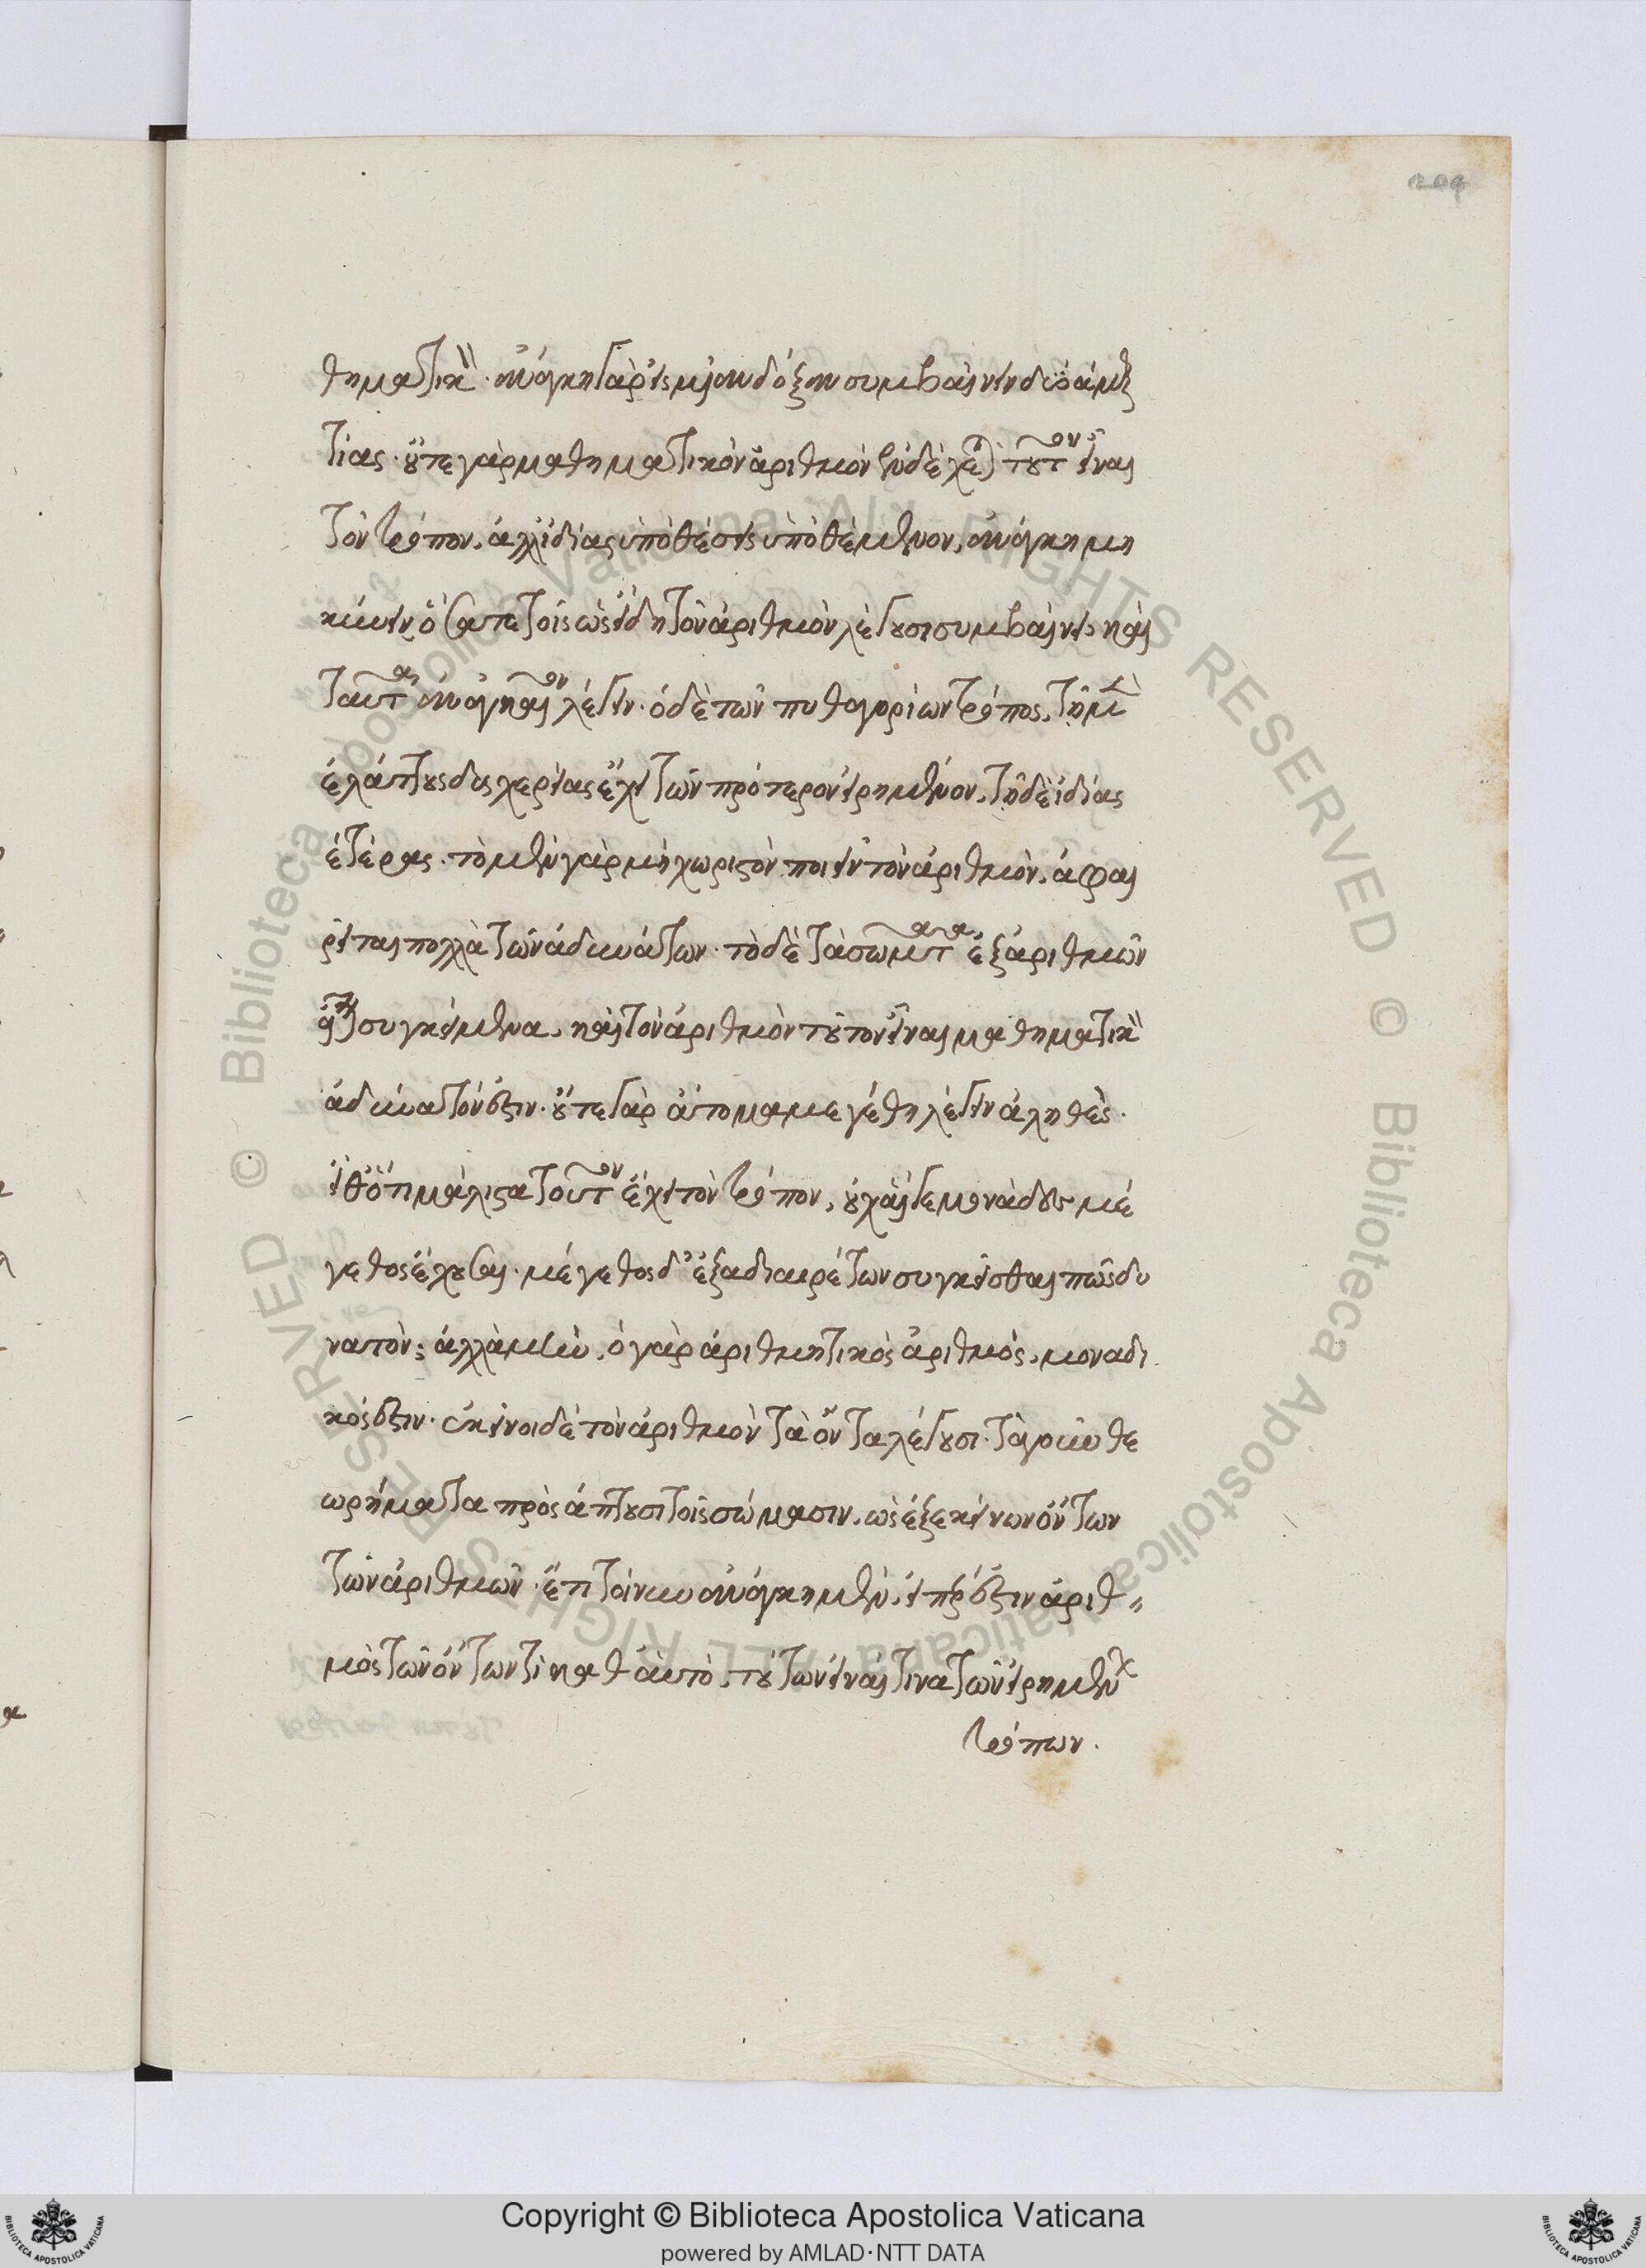 209
θηματικὸς. ἀνάγκη γὰρ εἰς μίαν δόξαν συμβαίνειν δύο ἁμαρ
τίας. οὔτε γὰρ μαθηματικὸν ἀριθμὸν ἐνδέχεται τοῦτον εἶναι
τὸν τρόπον, ἀλλ' ἰδίας ὑποθέσεις ὑποθέμενον, ἀνάγκη μη
κύνειν ὅσα τε τοῖς ὡς εἴδη τὸν ἀριθμὸν λέγουσι συμβαίνει, καὶ
ταῦτα ἀναγκαῖον λέγειν. ὁ δὲ τῶν πυθαγορίων τρόπος, τῇ μὲν
ἐλάττους δυσχερείας ἔχει τῶν πρότερον εἰρημένον, τῇ δὲ ἰδίας
ἑτέρας. τὸ μὲν γὰρ μὴ χωριστὸν ποιεῖν τὸν ἀριθμὸν, ἀφαι
ρεῖται πολλὰ τῶν ἀδυνάτων. τὸ δὲ τὰ σώματα ἐξ ἀριθμῶν
εἶναι συγκείμενα, καὶ τὸν ἀριθμὸν τοῦτον εἶναι μαθηματικὸν
ἀδύνατόν ἐστιν. οὔτε γὰρ ἄτομα μεγέθη λέγειν ἀληθές.
εἴθ' ὅτι μάλιστα τοῦτον ἔχει τὸν τρόπον, οὐχ αἵ γε μονάδες μέ
γεθος ἔχουσαι. μέγεθος δ' ἐξ ἀδιαιρέτων συγκεῖσθαι πῶς δυ
νατὸν; ἀλλὰ μὴν, ὁ γὰρ ἀριθμητικὸς ἀριθμὸς, μοναδι
κός ἐστιν. ἐκεῖνοι δὲ τὸν ἀριθμὸν τὰ ὄντα λέγουσι. τὰ γοῦν θε
ωρήματα πρὸς ἅπτουσι τοῖς σώμασιν, ὡς ἐξ ἐκείνων ὄντων
τῶν ἀριθμῶν. ἔτι τοίνυν ἀνάγκη μὲν, εἴπερ ἐστιν ἀριθ
μὸς τῶν ὄντων τὶ καθ' αὑτὸ, τούτων εἶναί τινα τῶν εἰρημένων
τρόπων.
Copyright © Biblioteca Apostolica Vaticana
powered by AMLAD·NTT DATA